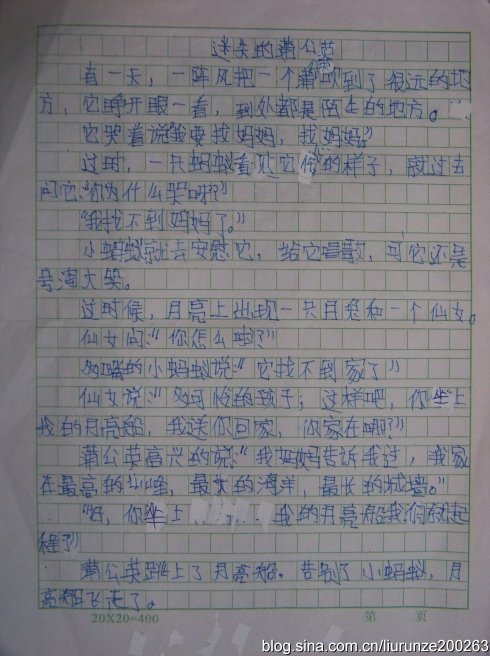 迷失的蒲公英
有一天，一阵风把一个蒲吹到了很远的地
方，它睁开眼一看，到处都是陌生的地方。
它哭着说我要找妈妈，找妈妈。”
过时，一只蚂蚁看见它的样子，就过去
问它：“你为什么哭呀？”
“我找不到妈妈了。”
小蚂蚁就去安慰它，给它唱歌，可它还是
号淘大哭。
过时候，月亮上出现一只月兔和一个仙女。
仙女问：“你怎么啦？”
多嘴的小蚂蚁说：“它找不到家了”
仙女说：“多可怜的孩子；这样吧，你坐上
我的月亮船，我送你回家，你家在哪？”
蒲公英高兴的说：“我妈妈告诉我过，我家
在最高的山峰，最大的海洋，最长的城墙。”
“好，你坐上我的月亮船我们就起
程了”
蒲公英跳上了月亮船。告别了小蚂蚁，月
亮船飞走了。
20X20=400
第 页
blog.sina.com.cn/liurunze200263